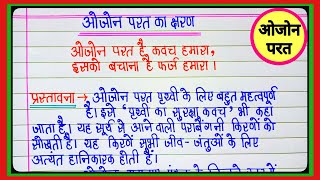 ओजोन परत का क्षरण
ओजोन
परत
ओजोन परत है कवच हमारा,
इसको बचाना है फर्ज हमारा।
प्रस्तावना → ओजोन परत पृथ्वी के लिए बहुत महत्वपूर्ण
है। इसे 'पृथ्वी का सुरक्षा कवच' भी कहा
जाता है। यह सूर्य से आने वाली पराबैंगनी किरणों को
सोखती है। यह किरणें सभी जीव-जंतुओं के लिए
अत्यंत हानिकारक होती हैं।